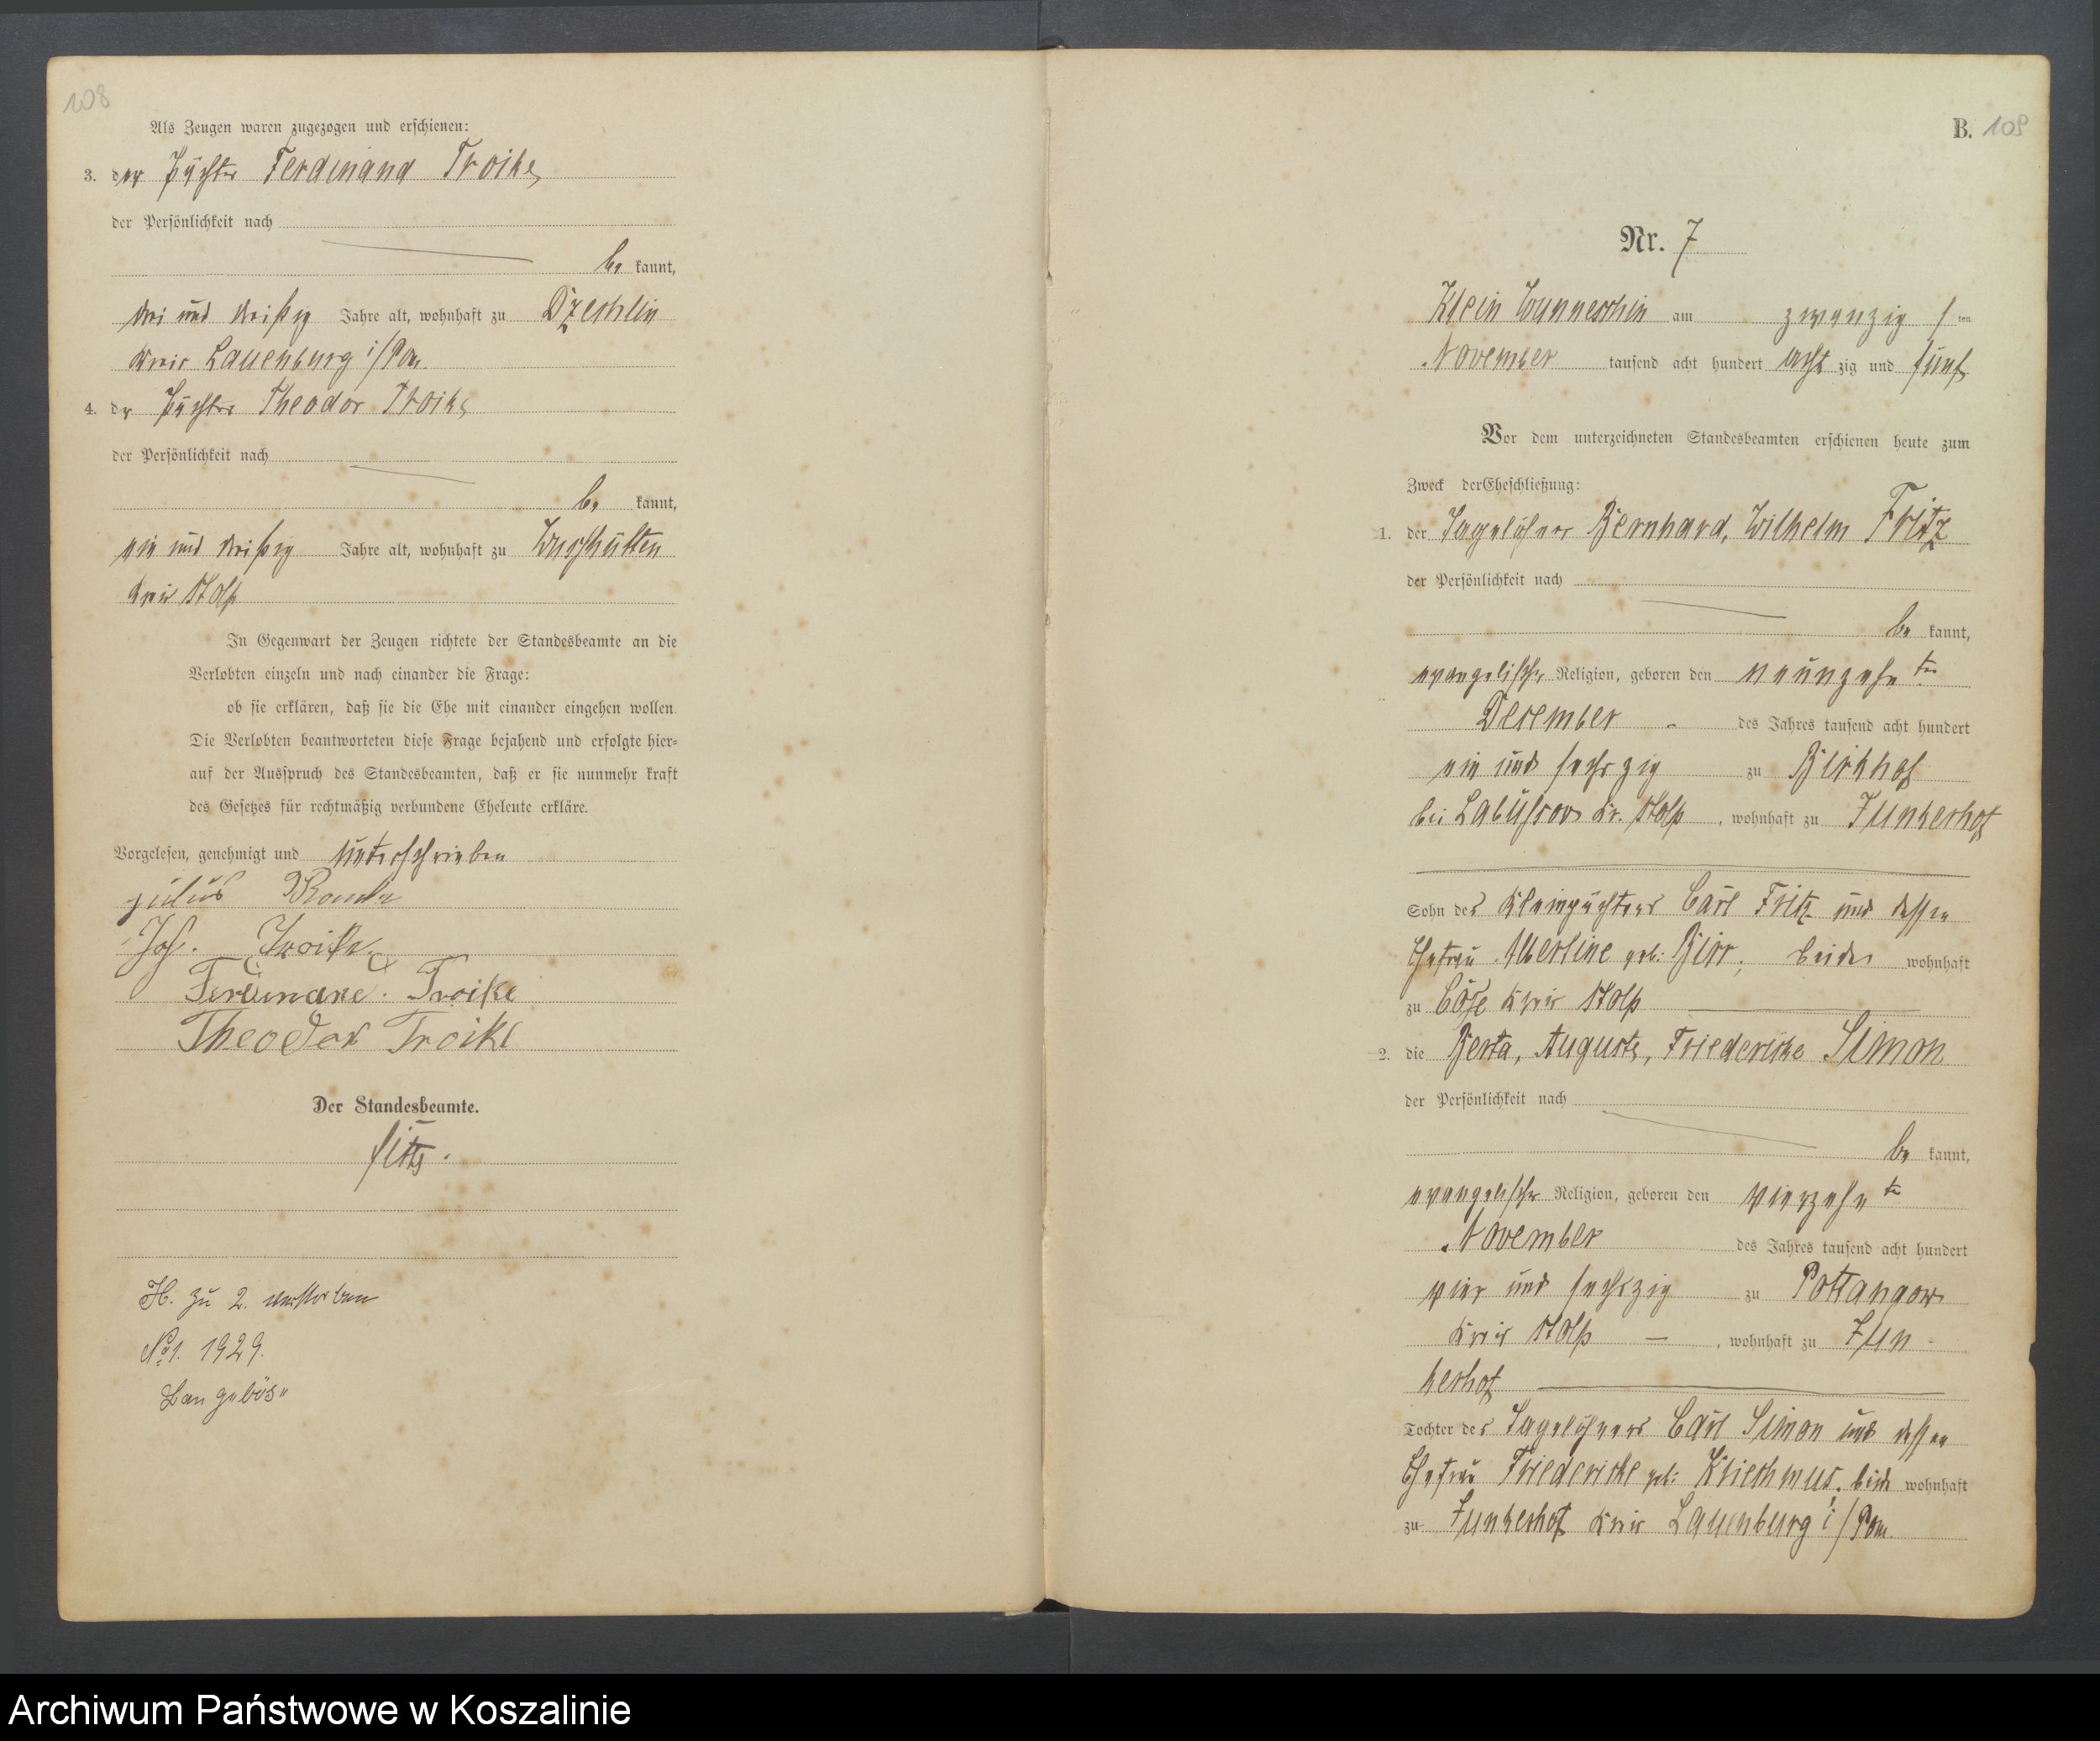 108
Als Zeugen waren zugezogen und erschienen:
3. der Pächter Ferdinand Troike,
der Persönlichkeit nach
be kannt,
drei und dreißig Jahre alt, wohnhaft zu Dzechlin
Kreis Lauenburg i/Pom.
4. der Pächter Theodor Troike
der Persönlichkeit nach
be kannt,
ein und dreißig Jahre alt, wohnhaft zu
Kreis Stolp
In Gegenwart der Zeugen richtete der Standesbeamte an die
Verlobten einzeln und nach einander die Frage:
ob sie erklären, daß sie die Ehe mit einander eingehen wollen.
Die Verlobten beantworteten diese Frage bejahend und erfolgte hier-
auf der Ausspruch des Standesbeamten, daß er sie nunmehr kraft
des Gesetzes für rechtmäßig verbundene Eheleute erkläre.
Vorgelesen, genehmigt und unterschrieben
Julius
Joh. Troike
Ferdinand. Troike
Theodor Troike
Der Standesbeamte.
H. zu 2. verstorben
No 1. 1929.
Langeböse
B. 109
Nr. 7
Klein Wunneschin am zwanzig sten
November tausend acht hundert acht zig und fünf
Vor dem unterzeichneten Standesbeamten erschienen heute zum
Zweck der Eheschließung:
1. der Tagelöhner Bernhard, Wilhelm Fritz
der Persönlichkeit nach
be kannt,
evangelischer Religion, geboren den neunzehnten
December des Jahres tausend acht hundert
ein und sechszig zu Birkhof
bei Labuhsow Kr. Stolp, wohnhaft zu Junkerhof
Sohn des Kleinpächters Carl Fritz und dessen
Ehefrau Albertine geb: Birr, beide wohnhaft
zu Cose Kreis Stolp
2. die Berta, Auguste, Friedericke Simon
der Persönlichkeit nach
be kannt,
evangelischer Religion, geboren den vierzehnten
November des Jahres tausend acht hundert
vier und sechszig zu Pottangow
Kreis Stolp —, wohnhaft zu Jun-
kerhof
Tochter des Tagelöhners Carl Simon und dessen
Ehefrau Friedericke geb: beide wohnhaft
zu Junkerhof Kreis Lauenburg i/Pom
Archiwum Państwowe w Koszalinie